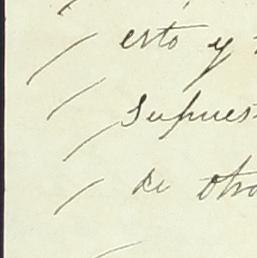 esto y
Supues
de otro